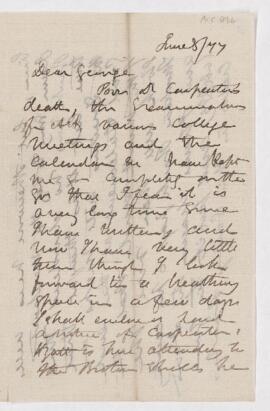 June 8/77
Dear George
Poor Dr Carpenter's
death, the Examinations
of the various college
meetings and the
Calendar &c have kept
me so completely on the
go that I fear it is
a very long time since
I have written and
now I have very little
time though I look
forward to a breathing
space in a few days
I shall enclose or send
a notice of Carpenter:
is here attending to
the he